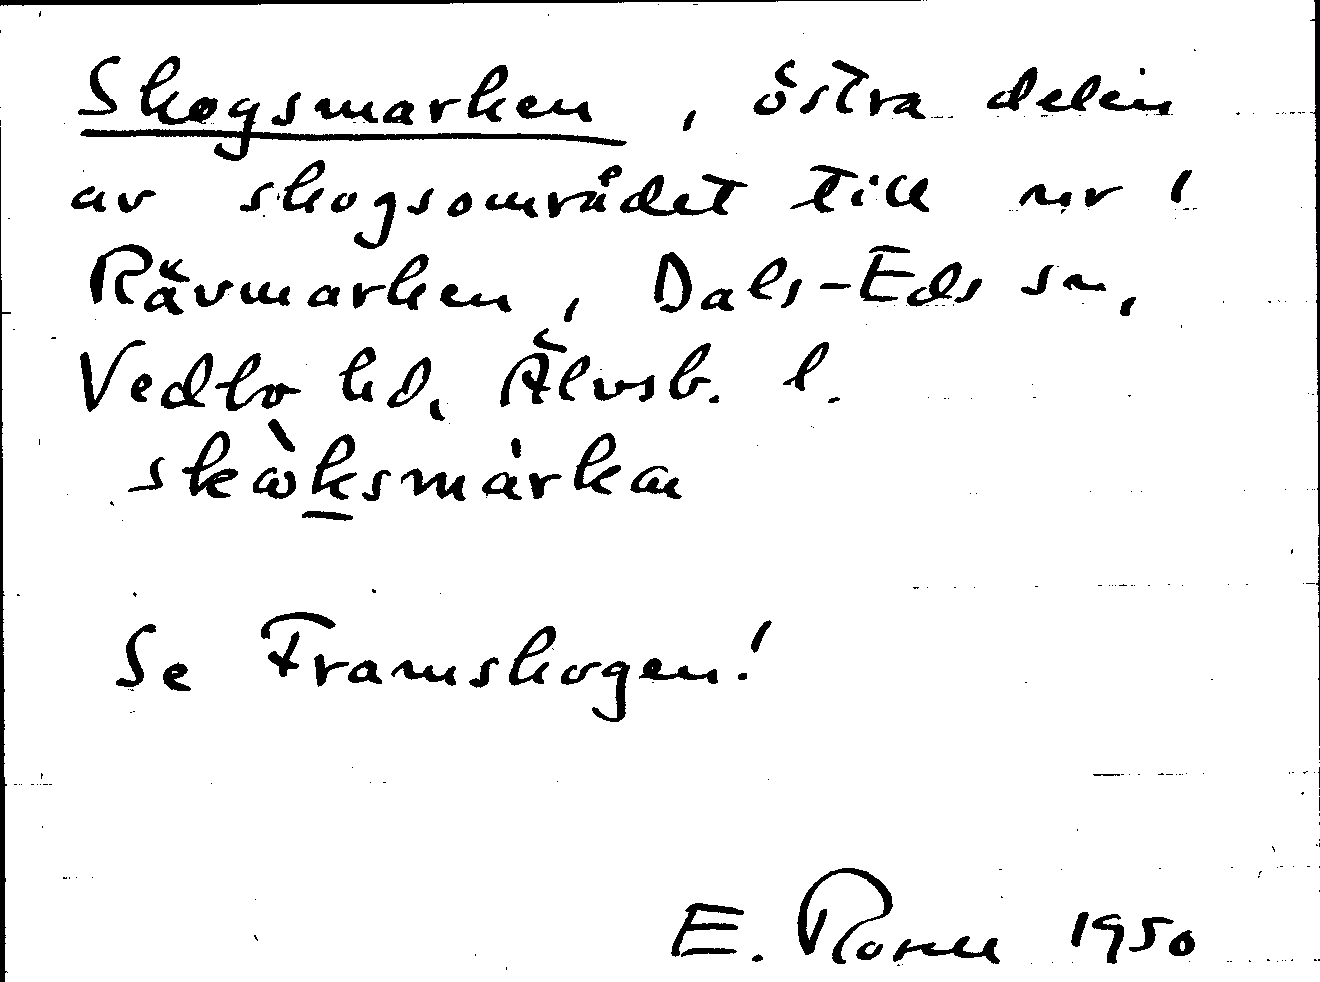 Skogsmarken, östra delen
av skogsområdet till nr 1
Rävmarken, Dals-Eds sn,
Vedbo hd, Älvsb. l.
skòksmárka
Se Framskogen!
E. Rosell 1950